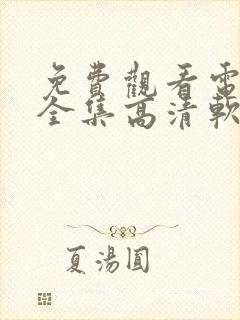 免費觀看電
全集高清軟
夏湯圓